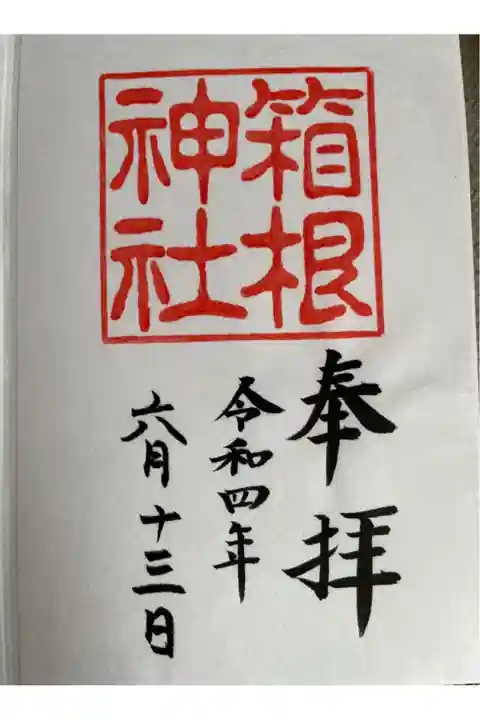 箱根
神社
奉拝
令和四年
六月十三日